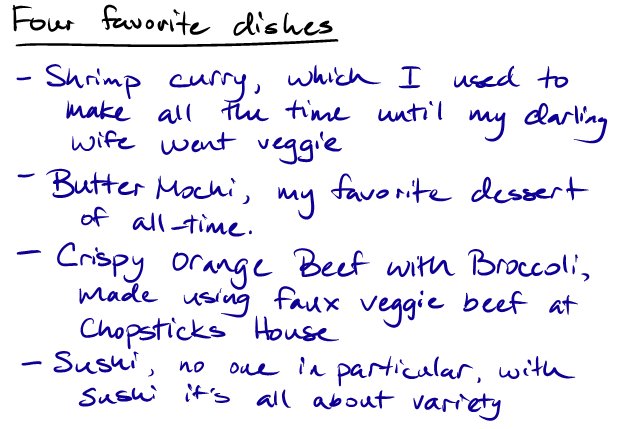 Four favorite dishes
- Shrimp curry, which I used to
make all the time until my darling
wife went veggie
- Butter Mochi, my favorite dessert
of all-time.
- Crispy Orange Beef with Broccoli,
made using faux veggie beef at
Chopsticks House
- Sushi, no one in particular, with
sushi it's all about variety